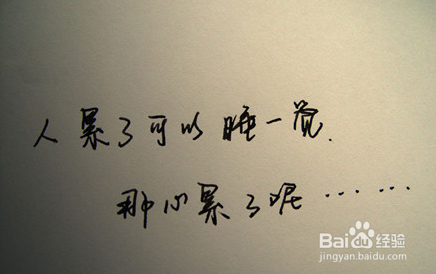 人累了可以睡一觉.
那心累了呢……
Baidu经验
jingyan.baidu.com